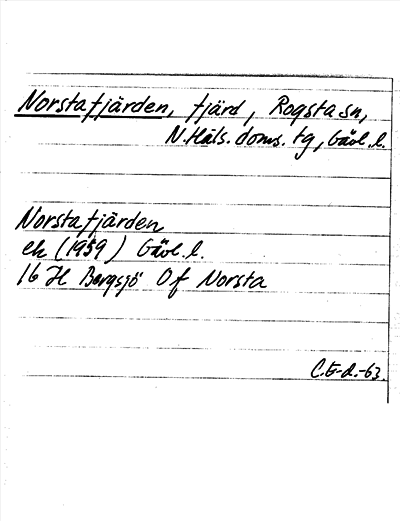 Norstafjärden, fjärd, Rogsta sn,
N.Häls. doms. tg, Gävl. l.
Norstafjärden
ek (1959) Gävl. l.
16 H Bergsjö Of Norsta
C.G-d.-63.